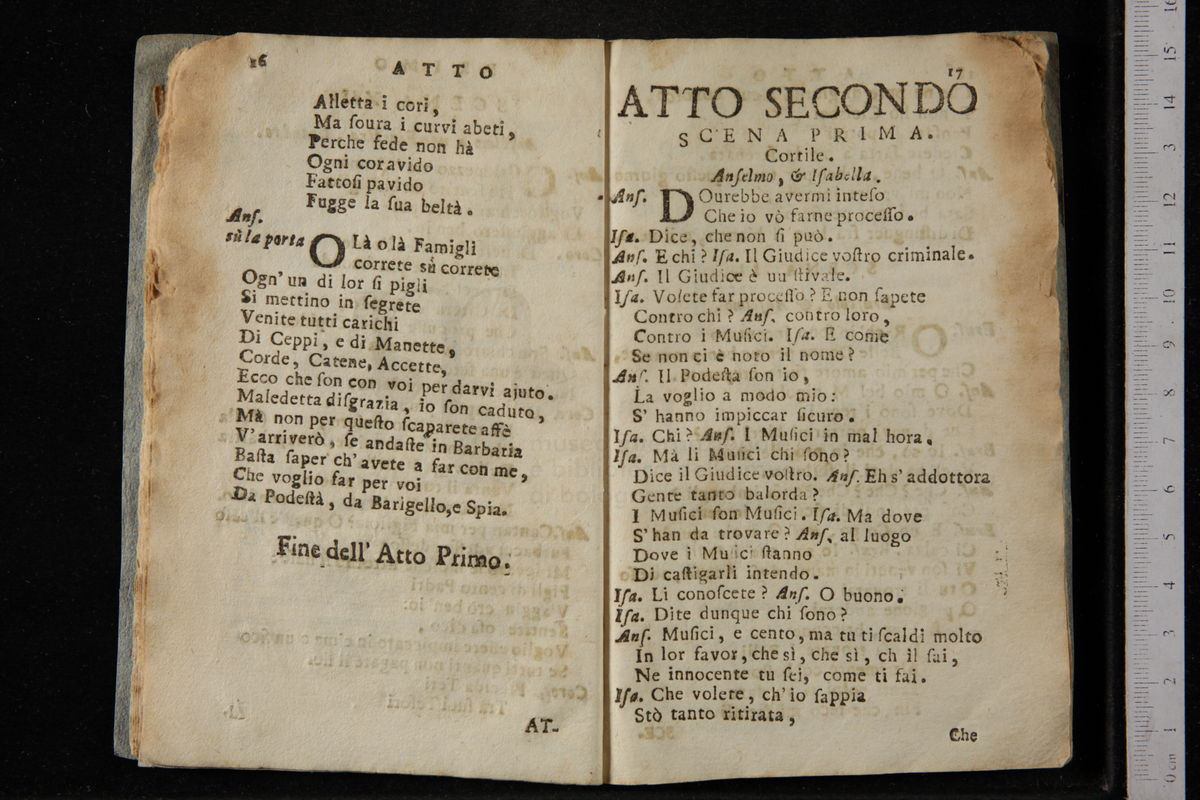 16
ATTO
Alletta i cori,
Ma ſoura i curvi abeti,
Perche fede non hà
Ogni cor avido
Fattoſi pavido
Fugge la ſua beltà.
Anſ.
sù la porta OLà olà Famigli
correte sù correte
Ogn' un di lor ſi pigli
Si mettino in ſegrete
Venite tutti carichi
Di Ceppi, e di Manette,
Corde, Catene, Accette,
Ecco che ſon con voi per darvi ajuto.
Maledetta diſgrazia, io ſon caduto,
Mà non per queſto ſcaparete affè
V' arriverò, ſe andaſte in Barbaria
Baſta ſaper ch' avete a far con me,
Che voglio far per voi
Da Podeſtà, da Barigello, e Spia.
Fine dell' Atto Primo.
AT-
17
ATTO SECONDO
SCENA PRIMA.
Cortile.
Anſelmo, & Iſabella.
Anſ. DOurebbe avermi inteſo
Che io vò farne proceſſo.
Iſa. Dice, che non ſi può.
Anſ. E chi? Iſa. Il Giudice voſtro criminale.
Anſ. Il Giudice è uu ſtivale.
Iſa. Volete far proceſſo? E non ſapete
Contro chi? Anſ. contro loro,
Contro i Muſici. Iſa. E come
Se non ci è noto il nome?
Anſ. Il Podeſta ſon io,
La voglio a modo mio:
S' hanno impiccar ſicuro.
Iſa. Chi? Anſ. I Muſici in mal hora.
Iſa. Mà li Muſici chi ſono?
Dice il Giudice voſtro. Anſ. Eh s' addottora
Gente tanto balorda?
I Muſici ſon Muſici. Iſa. Ma dove
S' han da trovare? Anſ. al luogo
Dove i Muſici ſtanno
Di caſtigarli intendo.
Iſa. Li conoſcete? Anſ. O buono.
Iſa. Dite dunque chi ſono?
Anſ. Muſici, e cento, ma tu ti ſcaldi molto
In lor favor, che sì, che sì, ch il ſai,
Ne innocente tu ſei, come ti fai.
Iſa. Che volere, ch' io ſappia
Stò tanto ritirata,
Che